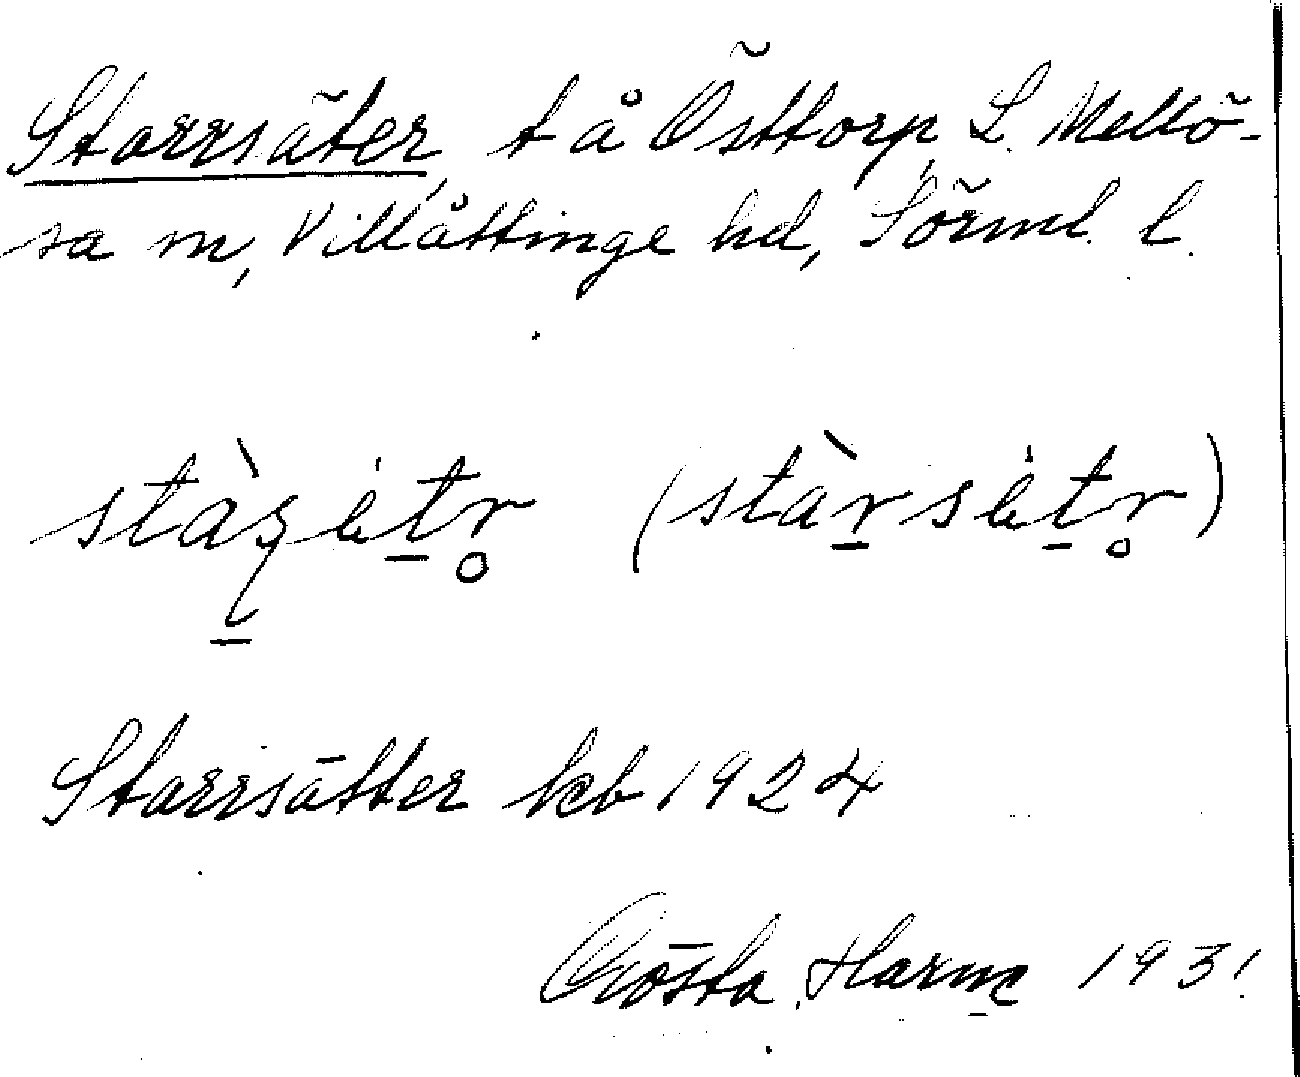 Starrsäter, t å Östtorp, L. Mellö-
sa sn, Villåttinge hd, Sörml. l.
(stàrsètr)
Starrsätter kb 1924
Gösta Harm 1931.